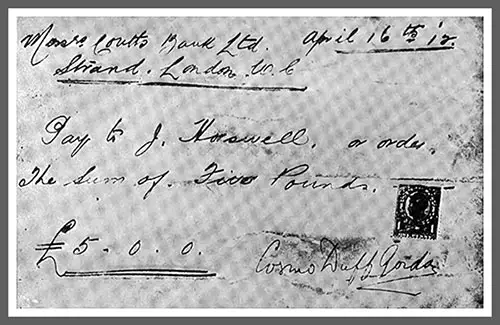 Messrs Coutts Bank Ltd. April 16th '12.
Strand. London. W.C
Pay to J. Horswell. or order.
The Sum of. Five Pounds.
£5-0.0.
Cosmo Duff Gordon